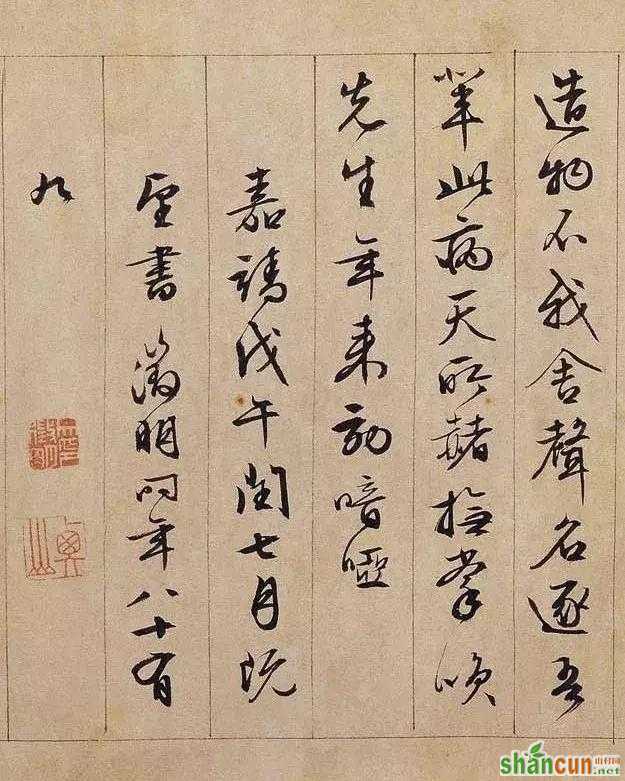 造物不我舍聲名逐吾
輩此病天所赭撫掌喚
先生年來効喑啞
嘉靖戊午閏七月既
望書徵明時年八十有
九
shancun
山村网
.net